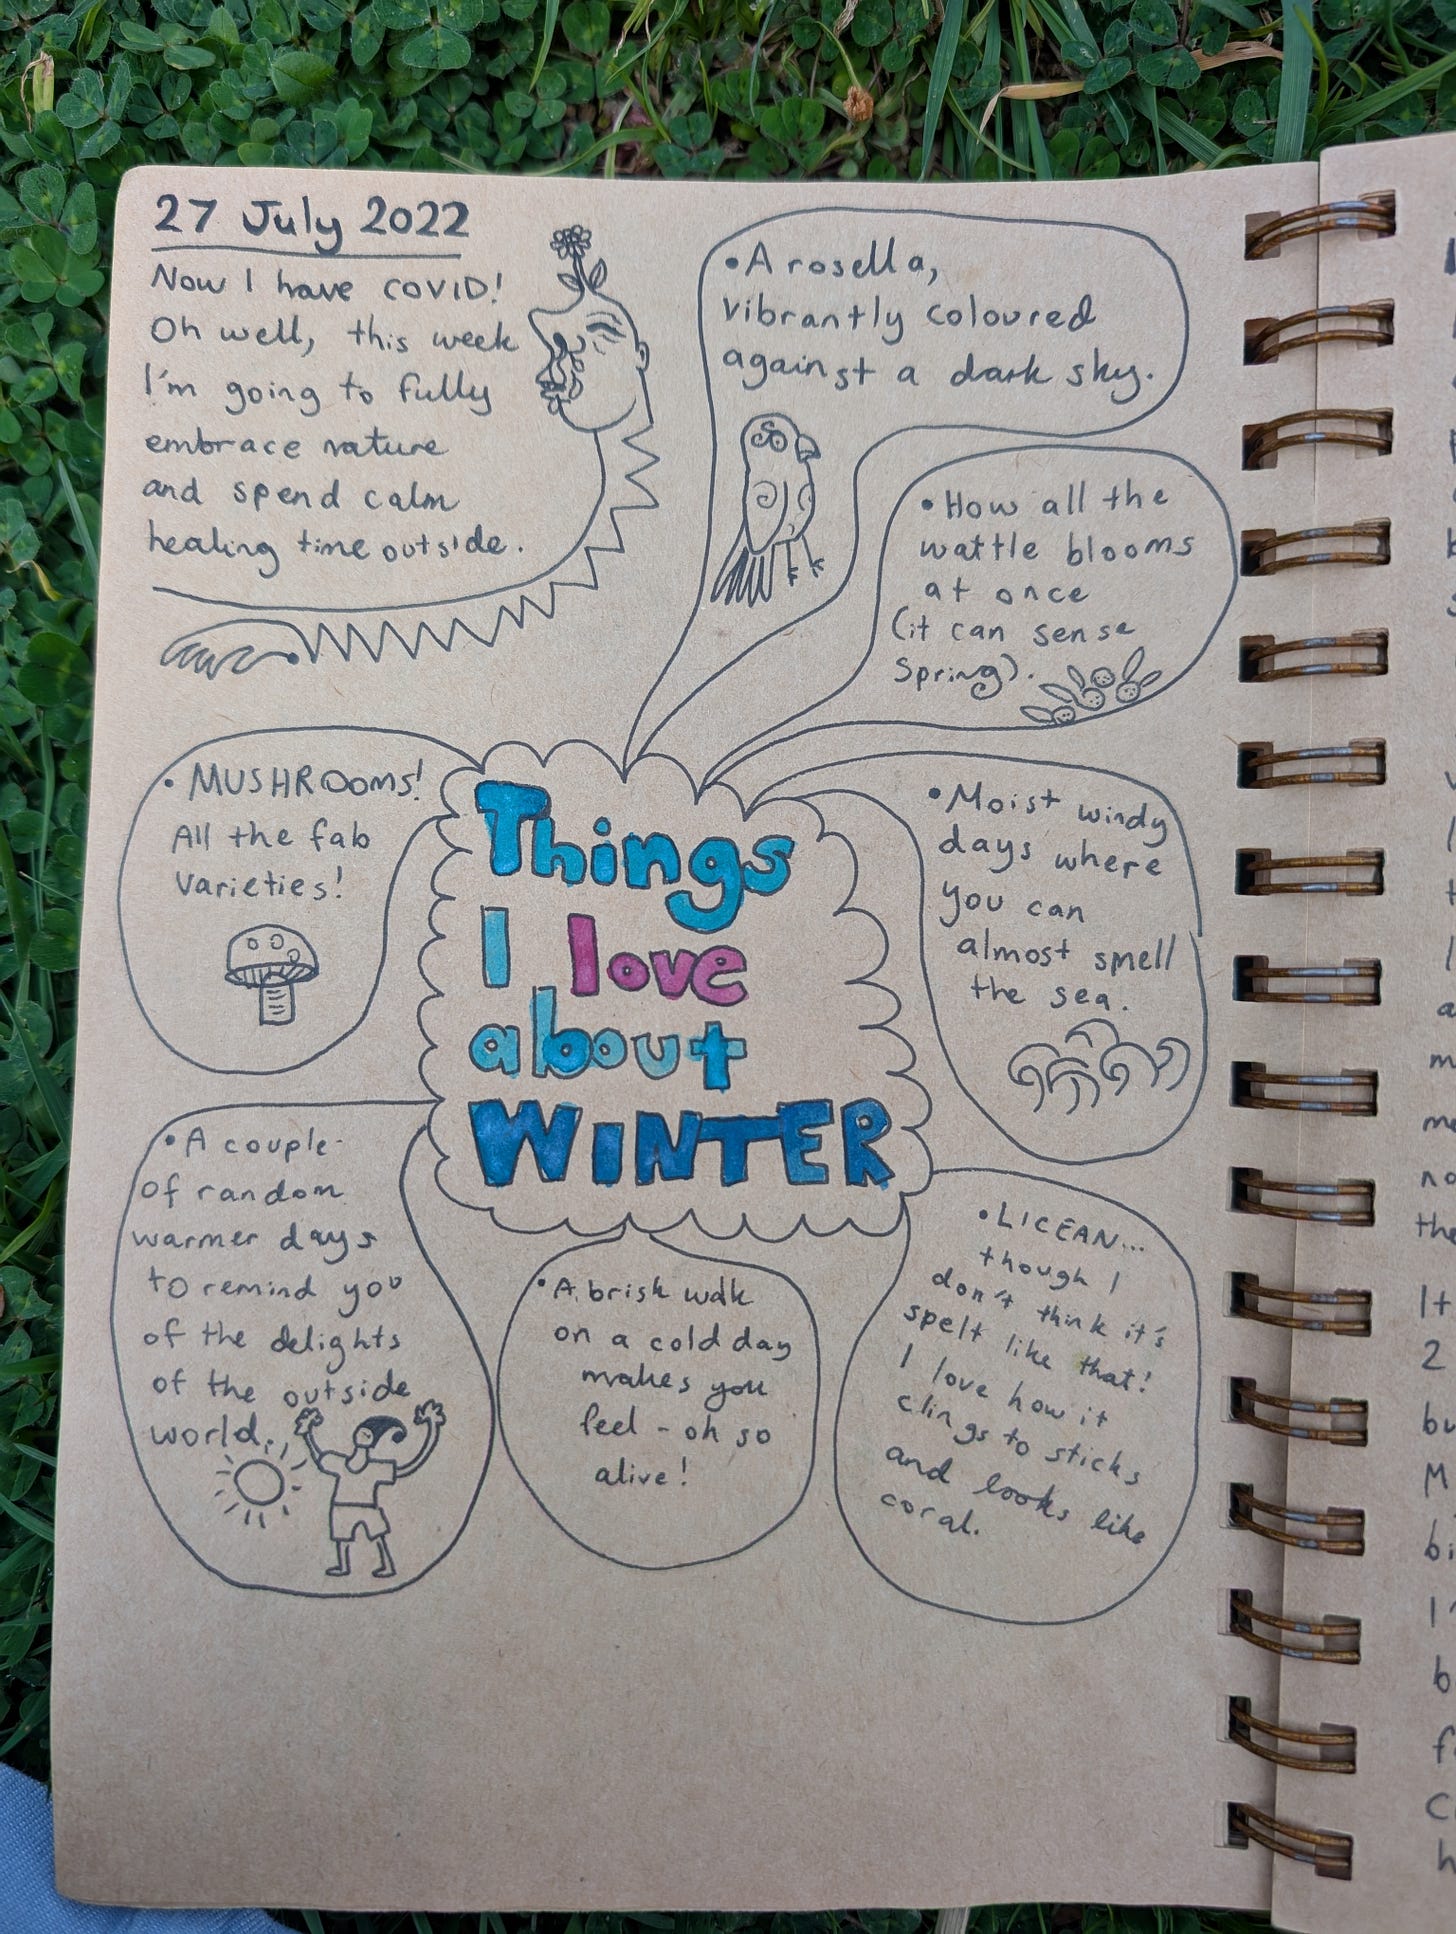 27 July 2022
Now I have COVID!
Oh well, this week
I'm going to fully
embrace nature
and spend calm
healing time outside.
• A rosella,
vibrantly coloured
against a dark sky.
• How all the
wattle blooms
at once
(it can sense
Spring).
• MUSHROOMS!
All the fab
varieties!
Things
I love
about
WINTER
• Moist windy
days where
you can
almost smell
the sea.
• A couple
of random
warmer days
to remind you
of the delights
of the outside
world.
• A brisk walk
on a cold day
makes you
feel - oh so
alive!
• LICEAN...
though I
don't think it's
spelt like that!
I love how it
clings to sticks
and looks like
coral.